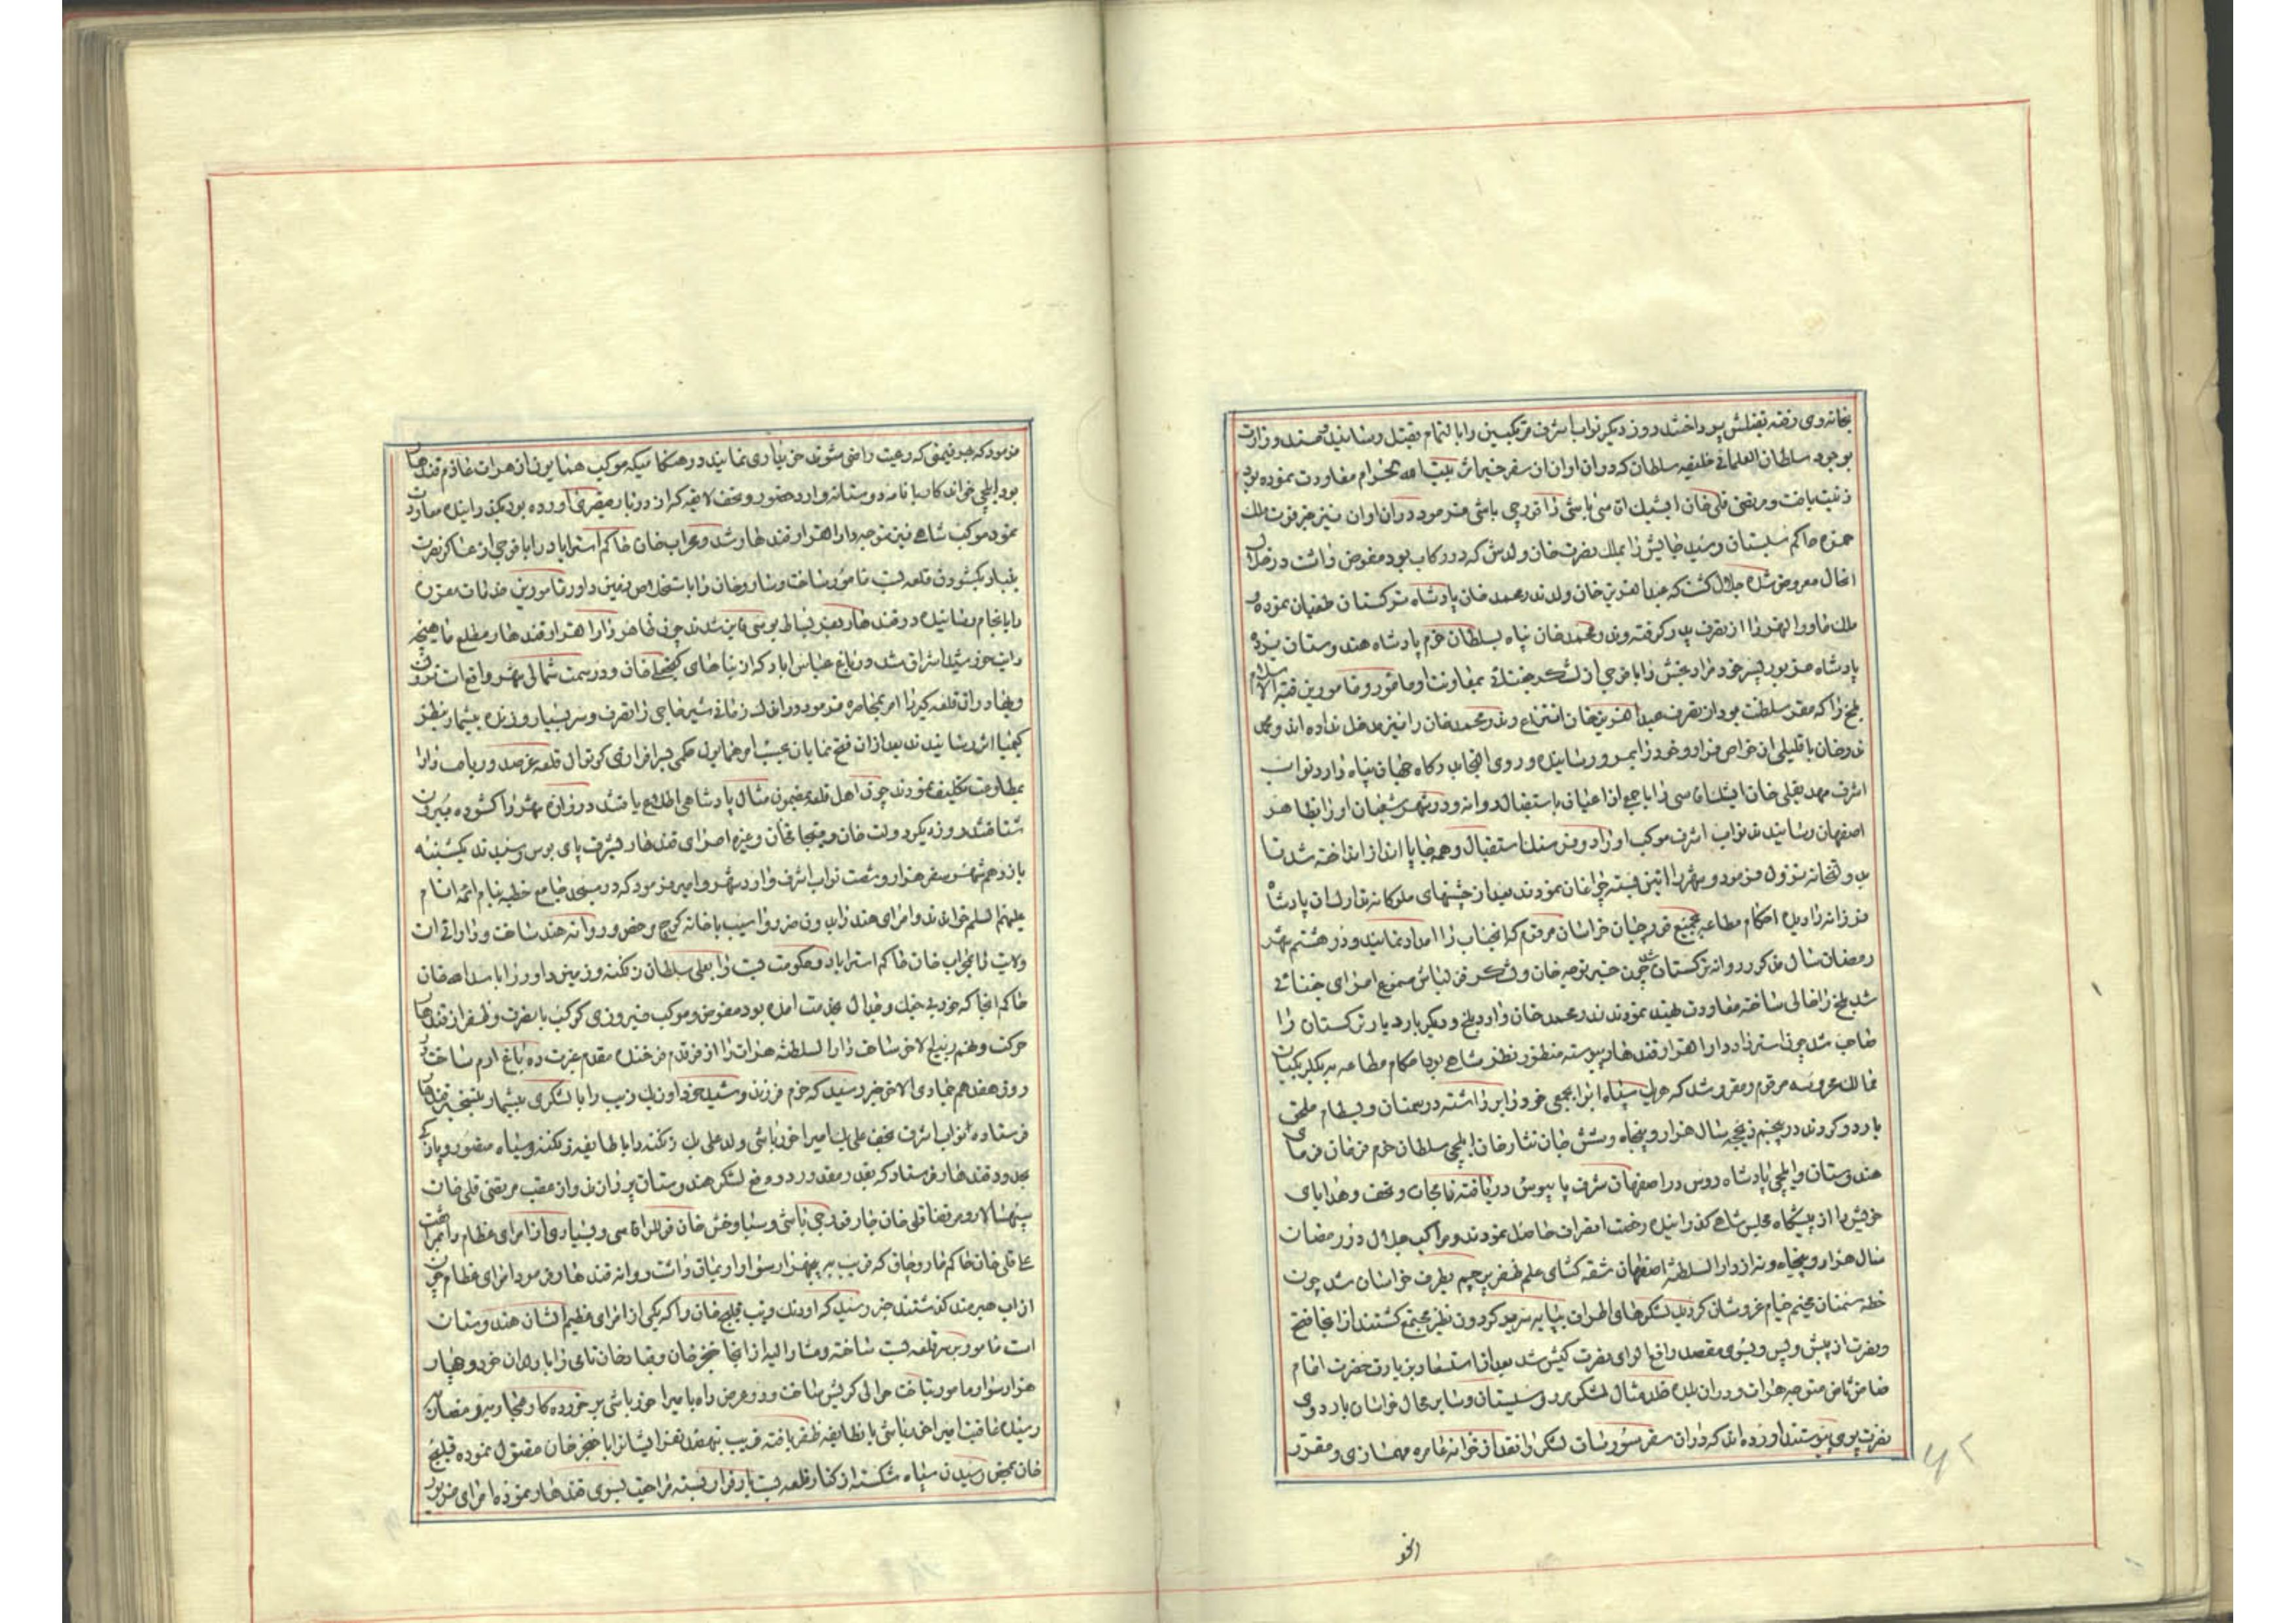 بخانه وی رفته بقتلش پرداختند روز دیگر نواب اشرف مرتکبین را بالتمام بقتل رسانیدند و وزارت
بوجود سلطان العلمائی خلیفه سلطان که در آن اوان از سفر خیر اثر بیت الله الحرام معاودت نموده بود
زینت یافت و مرتضی قلی خان ایشیک آقاسی باشی را قورچی باشی فرمود در آن اوان نیز خبر فوت ملک
حمزه حاکم سیستان رسید جایش را بملک نصرت خان ولدش که در رکاب بود مفوض داشت در خلال
اینحال معروض سده جلال گشت که عبد العزیز خان ولد ندر محمد خان پادشاه ترکستان طغیان نموده
ملک ماوراء النهر را از تصرف پدر گرفته و ندر محمد خان پناه بسلطان خرم پادشاه هندوستان برده
پادشاه مزبور پسر خود مراد بخش را با فوجی از لشکر جغتای بمعاونت او مامور و مامورین قبة الاسلام
بلخ را که مقر سلطنت بود از تصرف عبد العزیز خان انتزاع و ندر محمد خان را نیز مدخل نداده اند و محمد
ندر خان با قلیلی از خواص فرار و خود را بمرو رسانیده و روی التجا بدرگاه جهان پناه دارد نواب
اشرف مهدیقلی خان ایشک آقاسی را با جمعی از اعیان باستقبال روانه و در شهر شعبان او را بظاهر
اصفهان رسانیدند نواب اشرف موکب او را دو فرسنگ استقبال و همه جا پا انداز انداخته شد تا
بدولتخانه نزول فرمود و شهر را آئین بسته چراغان نمودند بعد از جشنهای ملوکانه تدارک آن پادشاه
فرزانه را دیده احکام مطاعه بجمیع قورچیان خراسان مرقوم که آنجناب را امداد نمایند و در هشتم شهر
رمضان سال مذکور روانه ترکستان شد چون خبر توجه خان و لشکر قزلباش مسموع امرای جغتای
شد بلخ را خالی ساخته معاودت بهند نمودند ندر محمد خان وارد بلخ و دیگر باره دیار ترکستان را
صاحب شد چون استرداد دار القرار قندهار پیوسته منظور نظر شاهی بود احکام مطاعه به بیگلربیگیان
ممالک محروسه مرقوم و مقرر شد که هر یک سپاه ابوابجمعی خود را برداشته در سمنان و بسطام ملحق
باردو کردند در پنجم ذیحجه سال هزار و پنجاه و شش جان نثار خان ایلچی سلطان خرم فرمان فرمای
هندوستان و ایلچی پادشاه روس در اصفهان شرف پابوس دریافته نامجات و تحف و هدایای
خویش را از پیشگاه مجلس شاهی گذرانیده رخصت انصراف حاصل نمودند و مراکب جلال در رمضان
سال هزار و پنجاه و نه از دار السلطنه اصفهان شقه گشای علم ظفر پرچم بطرف خراسان شد چون
خطه سمنان مخیم خیام عز و شان گردید لشکرهای اطراف بپایه سریر گردون نظیر مجتمع گشتند از آنجا فتح
و نصرت از پیش و پس و بسوی مقصد رافع لوای نصرت کیش شد بعد از استسعاد بزیارت حضرت امام
ضامن ثامن متوجه هرات و در آن بلده خلد مثال لشکر مرو و سیستان و سایر محال خراسان باردوی
نصرت پوی پیوستند آورده اند که در آن سفر سورسات لشکر را نقد از خزانه عامره مهمسازی و مقرر
۶۲
انجو
فرمود که بهر قیمتی که رعیت راضی شوند خریداری نمایند و هنگامیکه موکب همایون از هرات عازم قندهار
بود ایلچی خواندکار با نامه دوستانه وارد حضور و تحف لایقه که از دربار قیصری آورده بود بگذرانیده معاودت
نمود موکب شاهی نیز متوجه دار القرار قندهار شد و محراب خان حاکم استراباد را با فوجی از عساکر نصرت
بنیاد بگشودن قلعه بست مامور ساخت و ساروخان را باستخلاص زمین داور مامورین خدمات مقرره
را بانجام رسانیده در قندهار بعز بساط بوسی فایز شدند چون ظاهر دار القرار قندهار مطلع ماهیچه
رایت خورشید اشراق شد در باغ عباس آباد که از بناهای گنجعلی خان و در سمت شمالی شهر واقع است نزول
و بخادران قلعه گیر را امر بمحاصره فرمود در اندک زمانی شیر حاجی را تصرف و سر بسیار و زنده بیشمار بنظر
کیمیا اثر رسانیدند بعد از آن فتح نمایان حسب الامر همایون حکمی بسرافرازی کوتوال قلعه عز صدور یافت و او را
بمطاوعت تکلیف نمودند چون اهل قلعه بمضمون مثال پادشاهی اطلاع یافتند دروازه شهر را گشوده بیرون
شتافتند روز دیگر دولت خان و متجات خان و غیره امرای قندهار بشرف پای بوس رسیدند یکشنبه
یازدهم شهر صفر هزار و شصت نواب اشرف وارد شهر و امر فرمود که در مسجد جامع خطبه بنام ائمه انام
علیهم السلم خواندند و امرای هند را بدون ضرر و آسیب با خانه کوچ مرخص و روانه هند ساخت و دارائی آن
ولایت را بمحراب خان حاکم استراباد و حکومت بست را بعلی سلطان زنکنه و زمین داور را باسد الله خان
حاکم آنجا که خود بی جنگ و جدال بخدمت آمده بود مفوض و موکب فیروزی کوکب با نصرت و ظفر از قندهار
حرکت و نهم ربیع الآخر ساخت دار السلطنه هرات را از فر قدم فرخنده مقدم غیرت ده باغ ارم ساخت
روز هفدهم جمادی الاخر خبر رسید که خرم فرزند رشید خود اورنگ زیب را با لشکری بیشمار بتسخیر قندهار
فرستاده نواب اشرف نجف علی بیک امیر آخور باشی ولد علی بیک زنکنه را با طایفه زنکنه و سپاه منصور و یازکی
بحدود قندهار فرستاد که بقدر مقدور در دفع لشکر هندوستان پردازند و از عقب مرتضی قلی خان
سپهسالار و مرتضا قلی خان قاجار قورچی باشی و سیاوخش خان قوللر آقاسی و بسیاری از امرای عظام و نجف
علی قلی خان حاکم مار و چاق که قریب به پنجهزار سوار اویماق داشت روانه قندهار فرمود امرای عظام چون
از آب هیرمند گذشتند خبر رسید که اورنک زیب قلیچ خان را که یکی از امرای عظیم الشان هندوستان
است مامور بسر قلعه بست ساخته و مشار الیه از آنجا خنجر خان و قباد خان نامی را با برادران خود و چهار
هزار سوار مامور بتاخت حوالی کرشک ساخت و در عرض راه با میر آخور باشی برخورده کار و محاربه بر و مصاف
رسید عاقبت امیر آخور باشی با نطایفه ظفر یافته قریب بهفتصد نفر ایشانرا با خنجر خان مقتول نموده قلیچ
خان بمحض رسیدن سپاه شکسته از کنار قلعه بست بار فرار بسته مراجعت بسوی قندهار نموده امرای مزبور